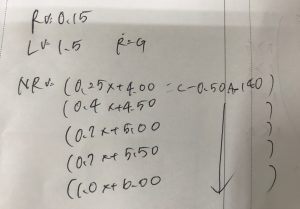 Rv: 0.15
Lv: 1.5 r̂=9
NRv= (0.25x+4.00 = c-0.50A-140)
(0.4x+4.50 )
(0.7x+5.00 )
(0.7x+5.50 )
(1.0x+6.00 )